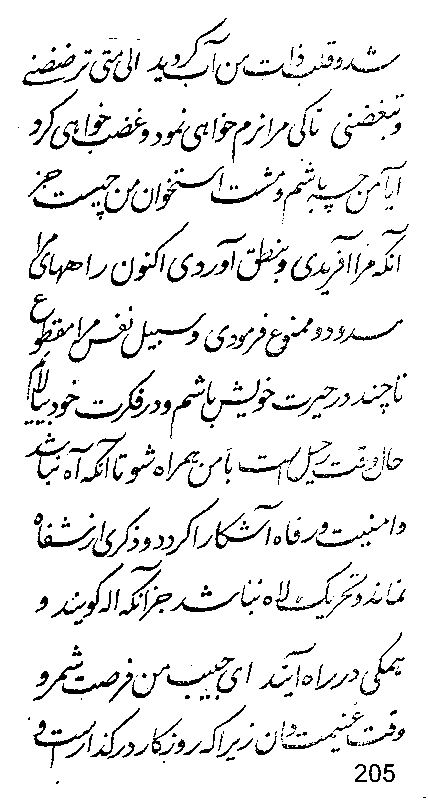 شد و قلب ذات من آب گردید الی متی ترضضنی
و تبغضنی تا کی مرا نرم خواهی نمود و غضب خواهی کرد
آیا من چه باشم و مشت استخوان من چیست جز
آنکه مرا آفریدی و بنطق آوردی اکنون راههای مرا
مسدود و ممنوع فرمودی و سبیل نفس مرا مقطوع
تا چند در حیرت خویش باشم و در فکرت خود بیالام
حال وقت رحیل است با من همراه شو تا آنکه آه نباشد
و امنیت و رفاه آشکارا گردد و ذکری از شفاه
نماند و تحریک لاه نباشد جز آنکه اله گویند و
همگی در راه آیند ای حبیب من فرصت شمر و
وقت غنیمت دان زیرا که روزگار در گذار است و
205